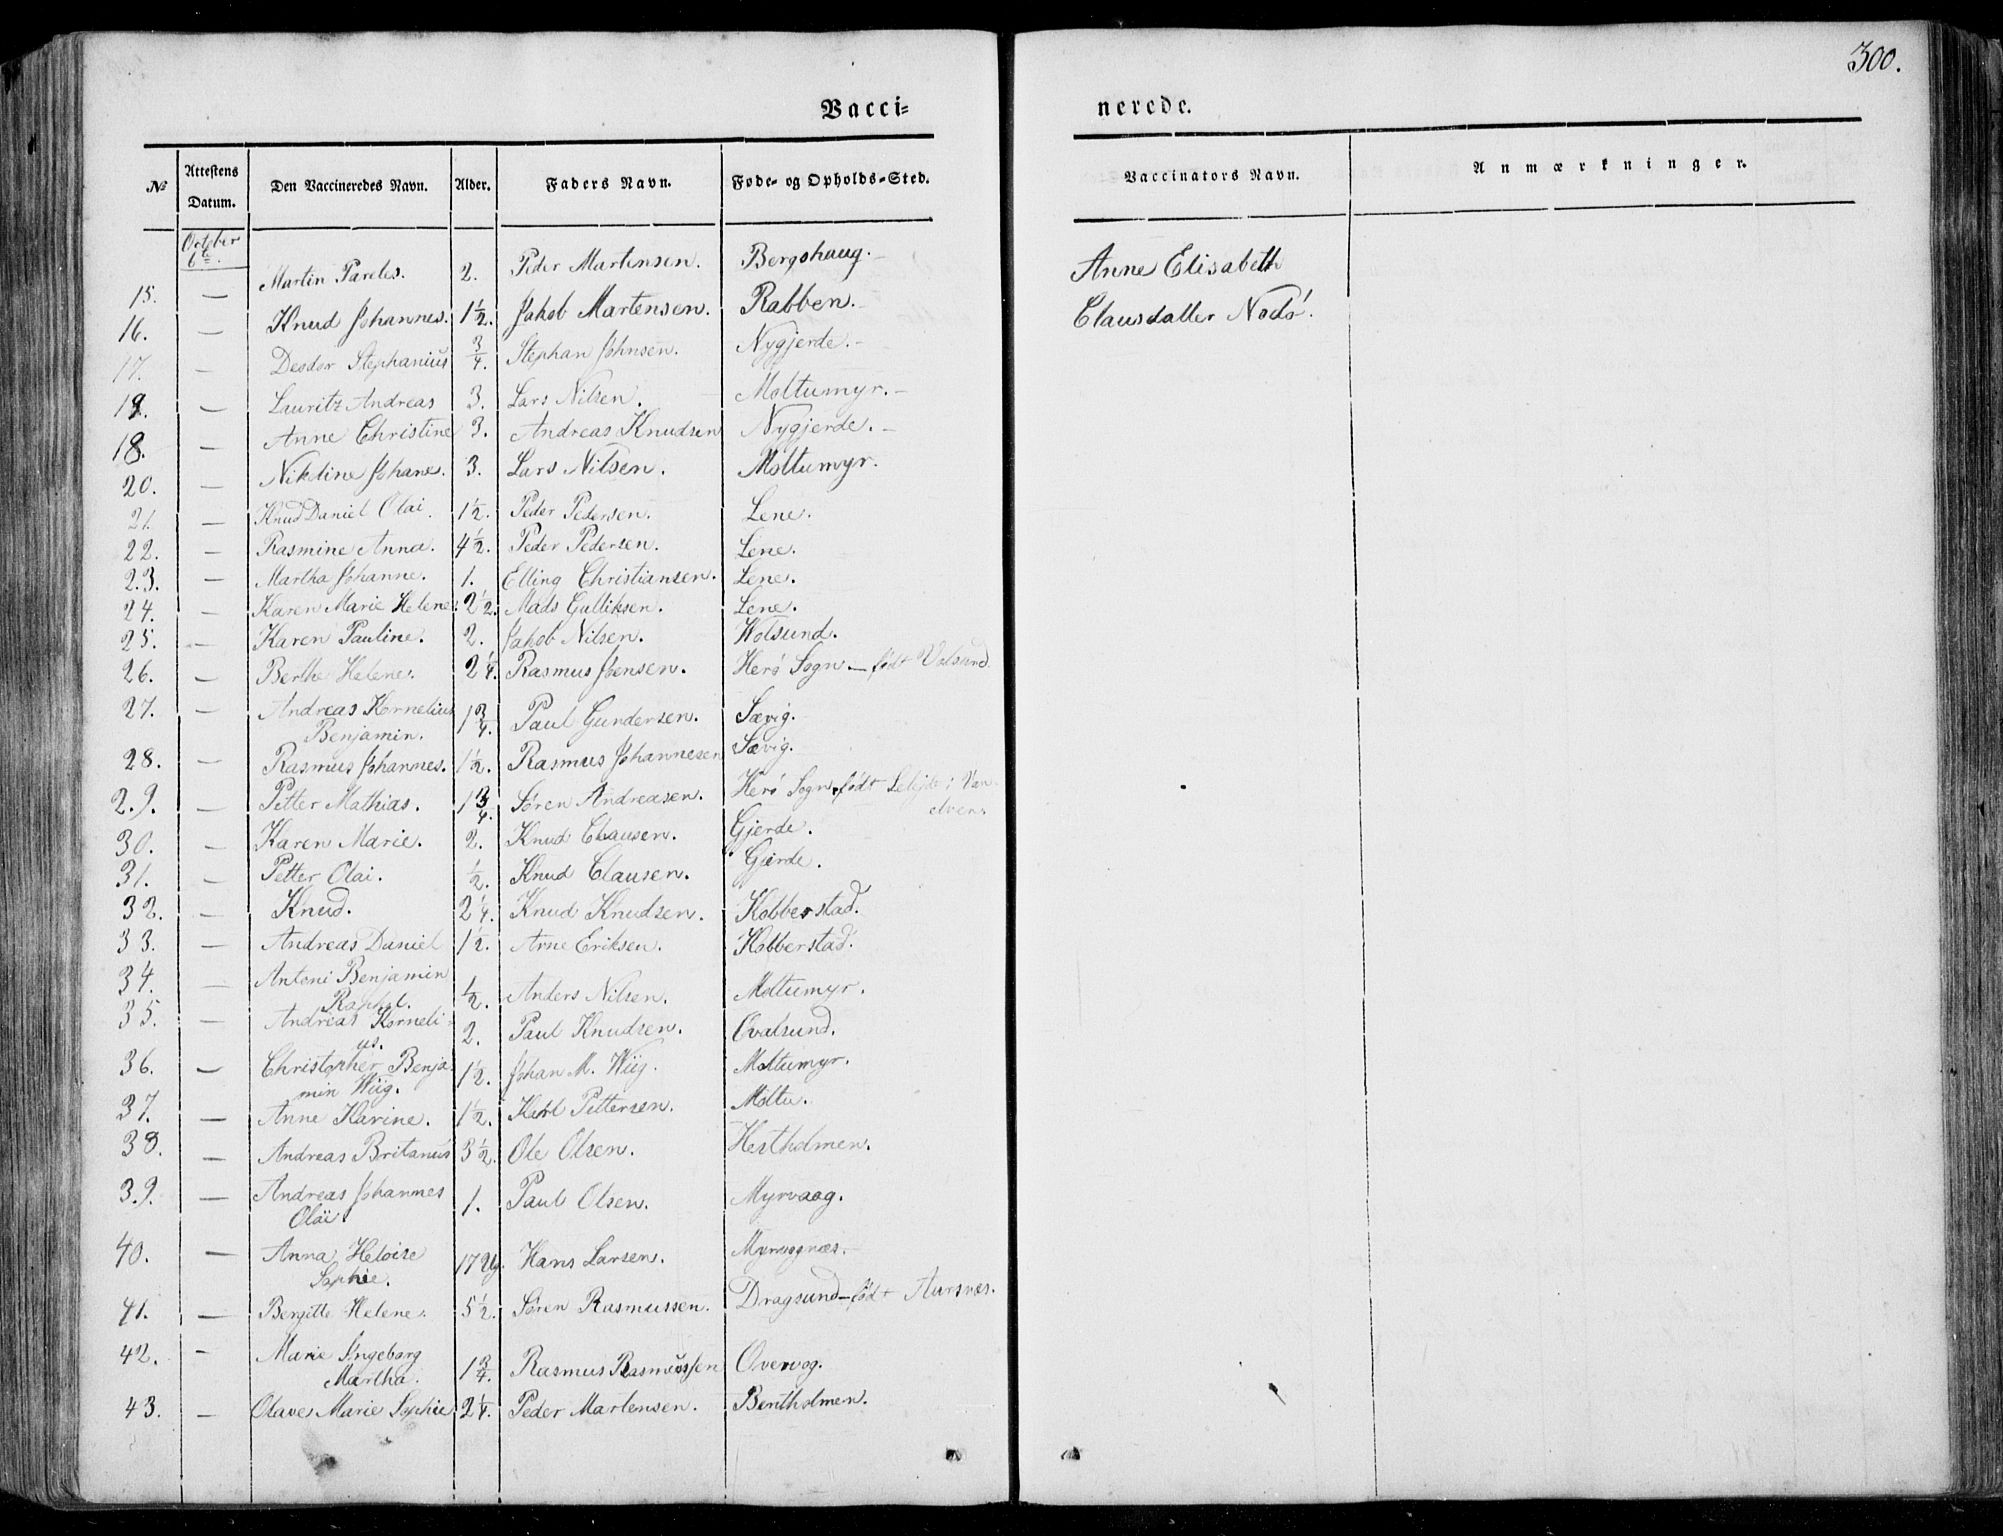 300.
Vacci=
nerede.
№ Attestens Datum. Den Vaccineredes Navn. Alder. Faders Navn. Føde= og Opholds=Sted.
Vaccinators Navn. Anmærkninger.
October
6te.
15. — Martin Pareles. 2. Peder Martensen. Bergshaug. —
Anne Elisabeth
16. — Knud Johannes. 1½. Jakob Martensen. Rabben. —
Clausdatter Nodø.
17. — Desdor Stephanius ¾. Stephan Johnsen. Nygjerde. —
19. — Lauritz Andreas 3. Lars Nilsen. Moltumyr. —
18. — Anne Christine 3. Andreas Knudsen Nygjerde. —
20. — Nikoline Johane. 3. Lars Nilsen. Moltumyr.
21. — Knud Daniel Olai. 1½. Peder Pedersen. Lene.
22. — Rasmine Anna. 4½. Peder Pedersen. Lene.
23. — Martha Johanne. 1. Elling Christiansen. Lene.
24. — Karen Marie Helene. 2½. Mads Gulliksen. Lene.
25. — Karen Pauline. 2. Jakob Nilsen. Wolsund.
26. — Berthe Helene. 2¼. Rasmus Jensen. Herø Sogn — født Volsund.
27. — Andreas Kornelius
Benjamin. 1¾. Paul Gundersen. Sævig.
28. — Rasmus Johannes. 1½. Rasmus Johannesen Sævig.
29. — Petter Mathias. 1¾. Søren Andreasen. Herø Sogn, født i Van
elven.
30. — Karen Marie. 2. Knud Clausen. Gjerde.
31. — Petter Olai. ½. Knud Clausen. Gjerde.
32. — Knud. 2¼. Knud Knudsen. Kobberstad.
33. — Andreas Daniel 1½. Arne Eriksen. Kobberstad.
34. — Antoni Benjamin
Raphel. ½. Anders Nilsen. Moltumyr.
35. — Andreas Korneli-
us. 2. Paul Knudsen. Qvalsund.
36. — Christopher Benja
min Wiig. 1½. Johan M. Wiig. Moltumyr.
37. — Anne Karine. 1½. Karl Pettersen. Moltu.
38. — Andreas Britanus 3½. Ole Olsen. Hestholmen.
39. — Andreas Johannes
Olai. 1. Paul Olsen. Myrvaag.
40. — Anna Heloise
Sophie. Hans Larsen. Myrvognæs.
41. — Bergitte Helene. 5½. Søren Rasmussen. Dragsund — født Aursnes.
42. — Marie Ingeborg
Martha. 1¾. Rasmus Rasmussen Overvog.
43. — Olave Marie Sophie 2¼. Peder Martensen. Bentholmen.